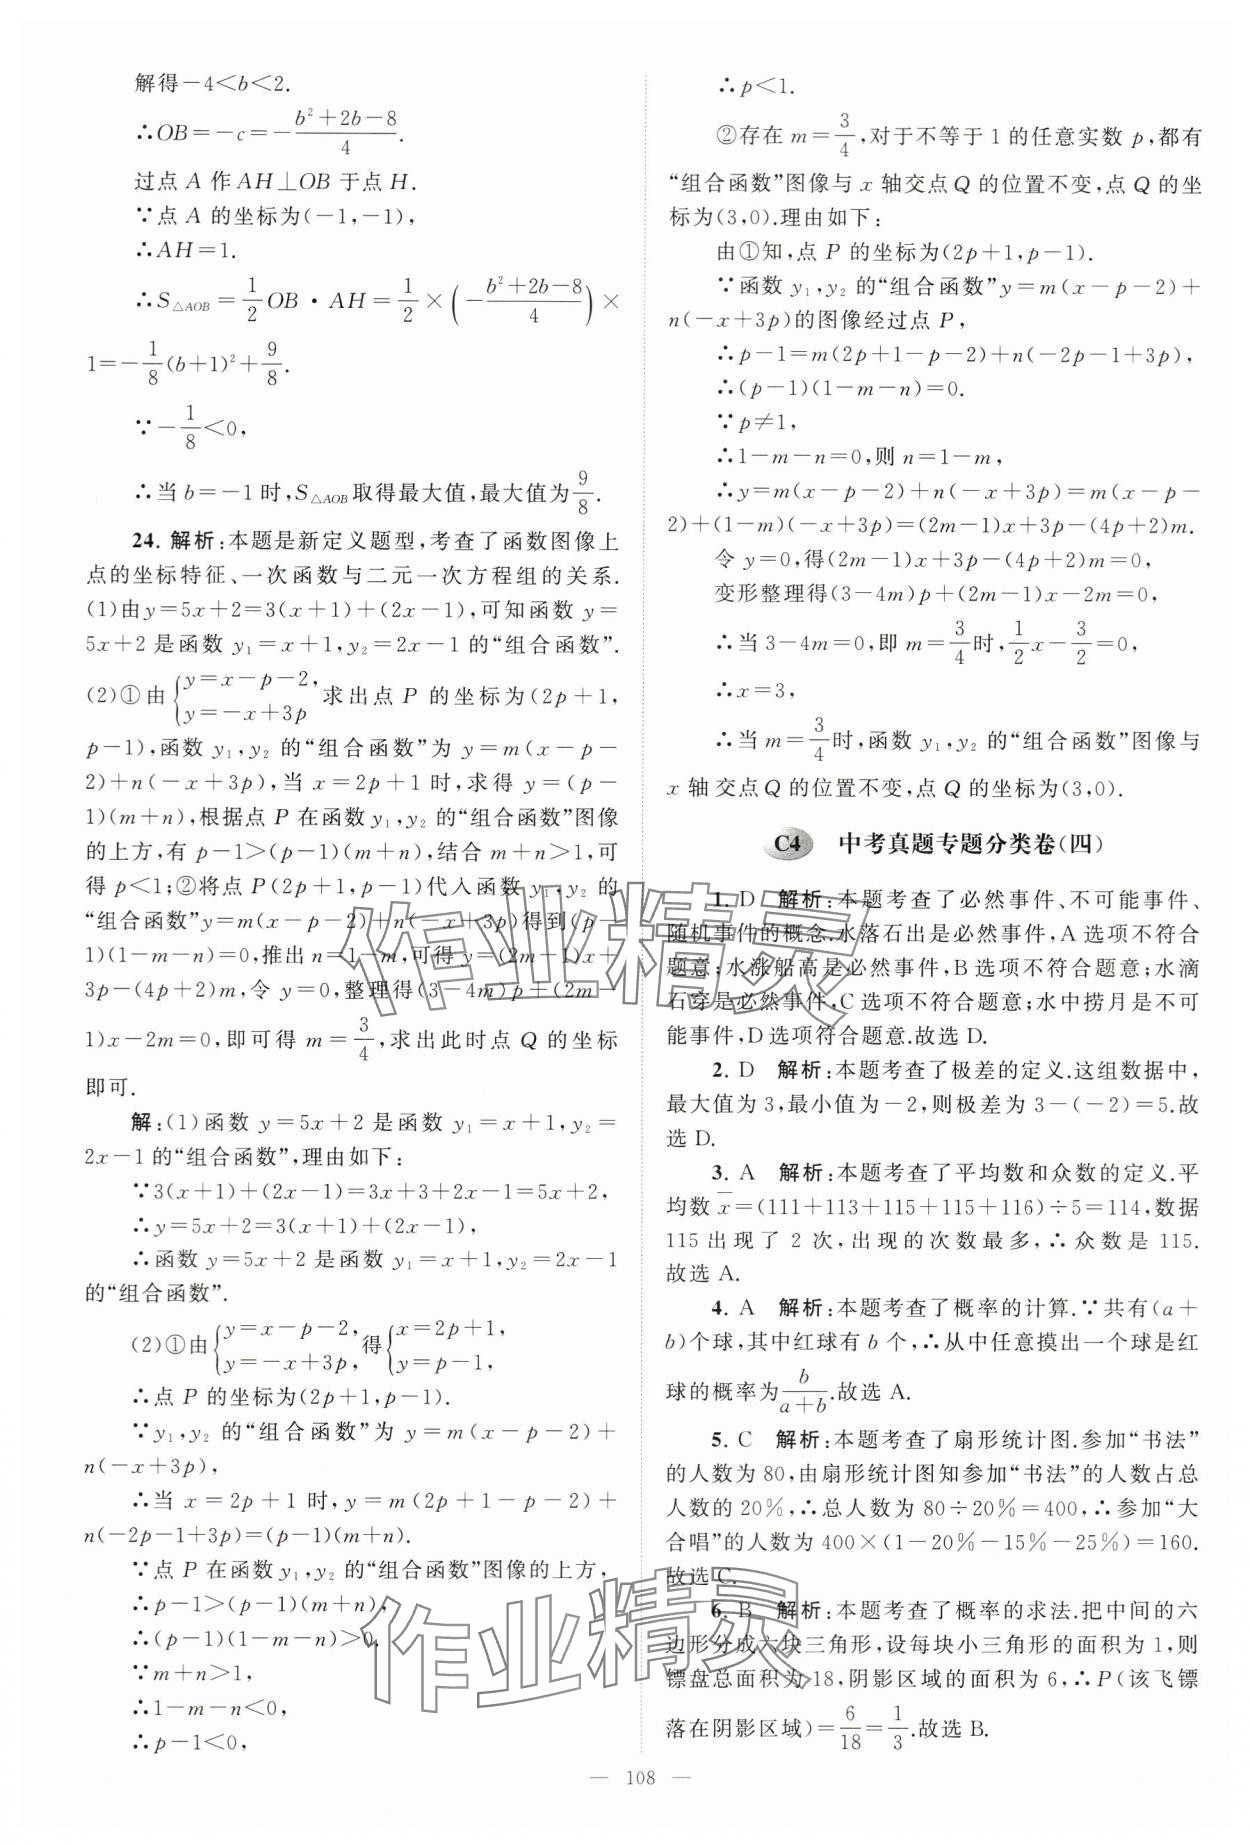 解得－4＜b＜2.
∴OB＝－c＝－(b²＋2b－8)/4.
过点 A 作 AH⊥OB 于点 H.
∵点 A 的坐标为(－1,－1),
∴AH＝1.
∴S△AOB＝1/2 OB·AH＝1/2×(－(b²＋2b－8)/4)×
1＝－1/8(b＋1)²＋9/8.
∵－1/8＜0,
∴当 b＝－1 时,S△AOB取得最大值,最大值为9/8.
24. 解析:本题是新定义题型,考查了函数图像上
点的坐标特征、一次函数与二元一次方程组的关系.
(1)由y＝5x＋2＝3(x＋1)＋(2x－1),可知函数 y＝
5x＋2 是函数 y₁＝x＋1,y₂＝2x－1 的“组合函数”.
(2)①由{y＝x－p－2, y＝－x＋3p 求出点 P 的坐标为(2p＋1,
p－1),函数 y₁,y₂ 的“组合函数”为 y＝m(x－p－
2)＋n(－x＋3p),当 x＝2p＋1 时,求得 y＝(p－
1)(m＋n),根据点 P 在函数 y₁,y₂ 的“组合函数”图像
的上方,有 p－1＞(p－1)(m＋n),结合 m＋n＞1,可
得 p＜1;②将点 P(2p＋1,p－1)代入函数 y₁,y₂ 的
“组合函数”y＝m(x－p－2)＋n(－x＋3p)得到(p－
1)(1－m－n)＝0,推出 n＝1－m,可得 y＝(2m－1)x＋
3p－(4p＋2)m,令 y＝0,整理得(3－4m)p＋(2m－
1)x－2m＝0,即可得 m＝3/4,求出此时点 Q 的坐标
即可.
解:(1)函数 y＝5x＋2 是函数 y₁＝x＋1,y₂＝
2x－1 的“组合函数”,理由如下:
∵3(x＋1)＋(2x－1)＝3x＋3＋2x－1＝5x＋2,
∴y＝5x＋2＝3(x＋1)＋(2x－1),
∴函数 y＝5x＋2 是函数 y₁＝x＋1,y₂＝2x－1
的“组合函数”.
(2)①由{y＝x－p－2, y＝－x＋3p,得{x＝2p＋1, y＝p－1,
∴点 P 的坐标为(2p＋1,p－1).
∵y₁,y₂ 的“组合函数”为 y＝m(x－p－2)＋
n(－x＋3p),
∴当 x＝2p＋1 时,y＝m(2p＋1－p－2)＋
n(－2p－1＋3p)＝(p－1)(m＋n).
∵点 P 在函数 y₁,y₂ 的“组合函数”图像的上方,
∴p－1＞(p－1)(m＋n),
∴(p－1)(1－m－n)＞0.
∵m＋n＞1,
∴1－m－n＜0,
∴p－1＜0,
∴p＜1.
②存在 m＝3/4,对于不等于 1 的任意实数 p,都有
“组合函数”图像与 x 轴交点 Q 的位置不变,点 Q 的坐
标为(3,0).理由如下:
由①知,点 P 的坐标为(2p＋1,p－1).
∵函数 y₁,y₂ 的“组合函数”y＝m(x－p－2)＋
n(－x＋3p)的图像经过点 P,
∴p－1＝m(2p＋1－p－2)＋n(－2p－1＋3p),
∴(p－1)(1－m－n)＝0.
∵p≠1,
∴1－m－n＝0,则 n＝1－m,
∴y＝m(x－p－2)＋n(－x＋3p)＝m(x－p－
2)＋(1－m)(－x＋3p)＝(2m－1)x＋3p－(4p＋2)m.
令 y＝0,得(2m－1)x＋3p－(4p＋2)m＝0,
变形整理得(3－4m)p＋(2m－1)x－2m＝0,
∴当 3－4m＝0,即 m＝3/4时,1/2x－3/2＝0,
∴x＝3,
∴当 m＝3/4时,函数 y₁,y₂ 的“组合函数”图像与
x 轴交点 Q 的位置不变,点 Q 的坐标为(3,0).
C4 中考真题专题分类卷(四)
1. D 解析:本题考查了必然事件、不可能事件、
随机事件的概念.水落石出是必然事件,A 选项不符合
题意;水涨船高是必然事件,B 选项不符合题意;水滴
石穿是必然事件,C 选项不符合题意;水中捞月是不可
能事件,D 选项符合题意.故选 D.
2. D 解析:本题考查了极差的定义.这组数据中,
最大值为 3,最小值为－2,则极差为 3－(－2)＝5.故
选 D.
3. A 解析:本题考查了平均数和众数的定义.平
均数 x̄＝(111＋113＋115＋115＋116)÷5＝114,数据
115 出现了 2 次,出现的次数最多,∴众数是 115.
故选 A.
4. A 解析:本题考查了概率的计算.∵共有(a＋
b)个球,其中红球有 b 个,∴从中任意摸出一个球是红
球的概率为b/(a＋b).故选 A.
5. C 解析:本题考查了扇形统计图.参加“书法”
的人数为 80,由扇形统计图知参加“书法”的人数占总
人数的 20％,∴总人数为 80÷20％＝400,∴参加“大
合唱”的人数为 400×(1－20％－15％－25％)＝160.
故选 C.
6. B 解析:本题考查了概率的求法.把中间的六
边形分成六块三角形,设每块小三角形的面积为 1,则
镖盘总面积为 18,阴影区域的面积为 6,∴P(该飞镖
落在阴影区域)＝6/18＝1/3.故选 B.
— 108 —
作业精灵
作业精灵